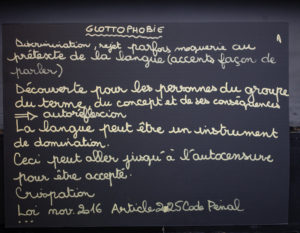 GLOTTOPHOBIE
A
Discrimination, rejet parfois moquerie au
prétexte de la langue (accents façon de
parler)
Découverte pour les personnes du groupe
du terme, du concept et de ses conséquences
⟹ autoréflexion
La langue peut être un instrument
de domination.
Ceci peut aller jusqu'à l'autocensure
pour être accepté.
Crispation
Loi nov. 2016 Article 225 Code Pénal
...